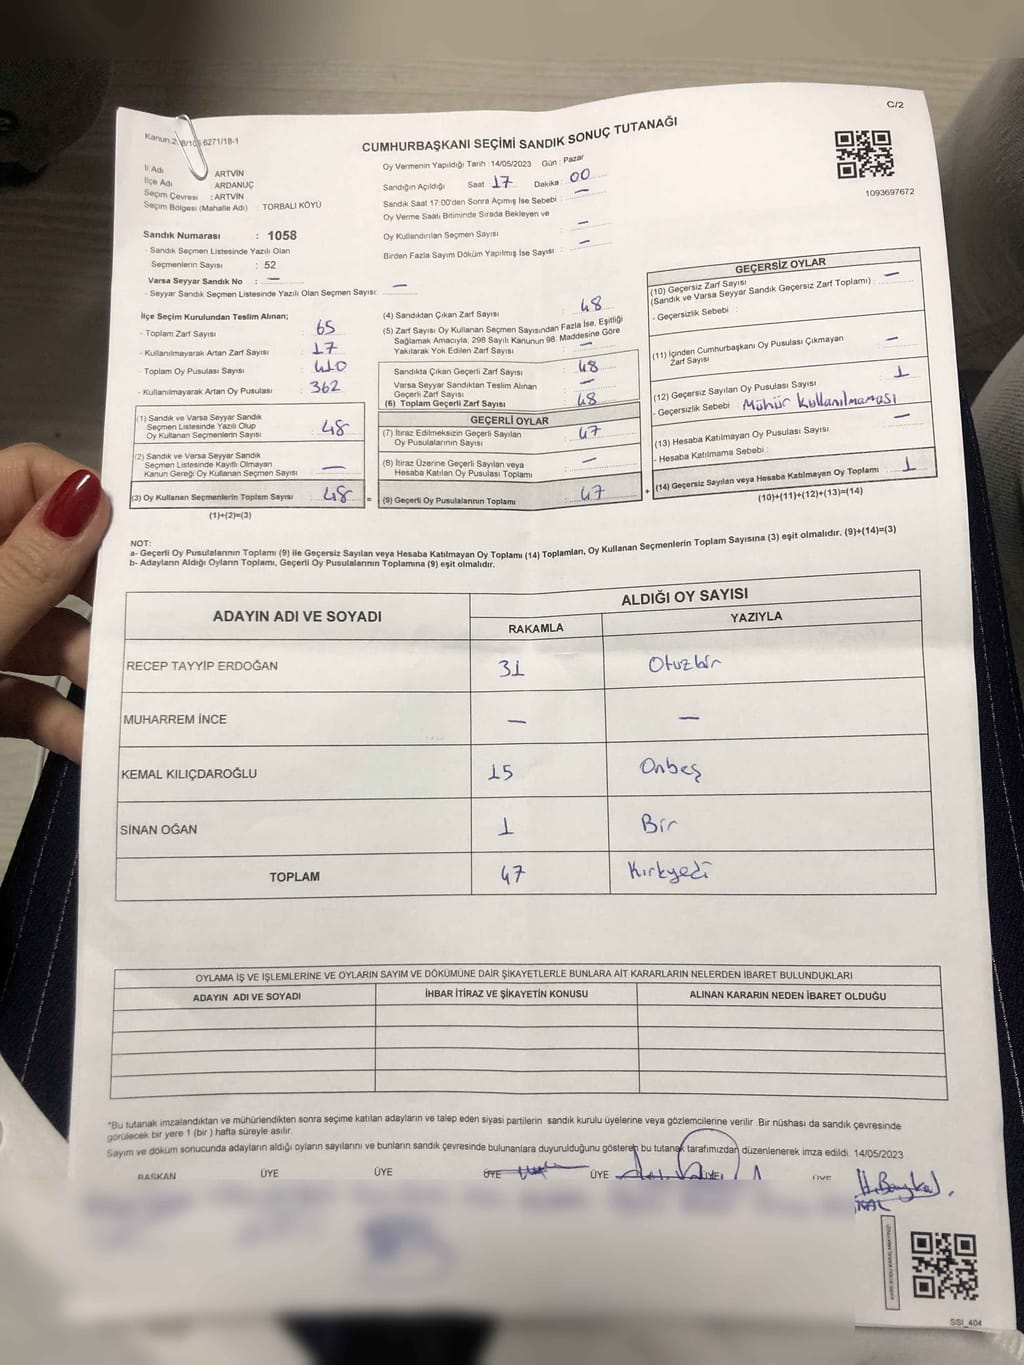 C/2
Kanun:2 8/105 6271/18-1
CUMHURBAŞKANI SEÇİMİ SANDIK SONUÇ TUTANAĞI
1093697672
İl Adı ARTVİN
İlçe Adı ARDANUÇ
Seçim Çevresi : ARTVİN
Seçim Bölgesi (Mahalle Adı) : TORBALI KÖYÜ
Sandık Numarası : 1058
- Sandık Seçmen Listesinde Yazılı Olan
Seçmenlerin Sayısı : 52
Varsa Seyyar Sandık No : —
- Seyyar Sandık Seçmen Listesinde Yazılı Olan Seçmen Sayısı: —
Oy Vermenin Yapıldığı Tarih :14/05/2023 Gün : Pazar
Sandığın Açıldığı Saat 17 Dakika : 00
Sandık Saat 17:00'den Sonra Açımış İse Sebebi : —
Oy Verme Saati Bitiminde Sırada Bekleyen ve
Oy Kullandırılan Seçmen Sayısı —
Birden Fazla Sayım Döküm Yapılmış İse Sayısı : —
İlçe Seçim Kurulundan Teslim Alınan;
- Toplam Zarf Sayısı : 65
- Kullanılmayarak Artan Zarf Sayısı : 17
- Toplam Oy Pusulası Sayısı : 410
- Kullanılmayarak Artan Oy Pusulası : 362
(1) Sandık ve Varsa Seyyar Sandık
Seçmen Listesinde Yazılı Olup
Oy Kullanan Seçmenlerin Sayısı : 48
(2) Sandık ve Varsa Seyyar Sandık
Seçmen Listesinde Kayıtlı Olmayan
Kanun Gereği Oy Kullanan Seçmen Sayısı : —
(3) Oy Kullanan Seçmenlerin Toplam Sayısı : 48 =
(1)+(2)=(3)
(4) Sandıktan Çıkan Zarf Sayısı : 48
(5) Zarf Sayısı Oy Kullanan Seçmen Sayısından Fazla İse, Eşitliği
Sağlamak Amacıyla, 298 Sayılı Kanunun 98. Maddesine Göre
Yakılarak Yok Edilen Zarf Sayısı : —
Sandıkta Çıkan Geçerli Zarf Sayısı : 48
Varsa Seyyar Sandıktan Teslim Alınan
Geçerli Zarf Sayısı : —
(6) Toplam Geçerli Zarf Sayısı : 48
GEÇERLİ OYLAR
(7) İtiraz Edilmeksizin Geçerli Sayılan
Oy Pusulalarının Sayısı : 47
(8) İtiraz Üzerine Geçerli Sayılan veya
Hesaba Katılan Oy Pusulası Toplamı : —
(9) Geçerli Oy Pusulalarının Toplamı : 47 +
GEÇERSİZ OYLAR
(10) Geçersiz Zarf Sayısı
(Sandık ve Varsa Seyyar Sandık Geçersiz Zarf Toplamı) : —
- Geçersizlik Sebebi :
(11) İçinden Cumhurbaşkanı Oy Pusulası Çıkmayan
Zarf Sayısı : —
(12) Geçersiz Sayılan Oy Pusulası Sayısı : 1
- Geçersizlik Sebebi : Mühür kullanılmaması
(13) Hesaba Katılmayan Oy Pusulası Sayısı : —
- Hesaba Katılmama Sebebi :
(14) Geçersiz Sayılan veya Hesaba Katılmayan Oy Toplamı : 1
(10)+(11)+(12)+(13)=(14)
NOT:
a- Geçerli Oy Pusulalarının Toplamı (9) ile Geçersiz Sayılan veya Hesaba Katılmayan Oy Toplamı (14) Toplamları, Oy Kullanan Seçmenlerin Toplam Sayısına (3) eşit olmalıdır. (9)+(14)=(3)
b- Adayların Aldığı Oyların Toplamı, Geçerli Oy Pusulalarının Toplamına (9) eşit olmalıdır.
ADAYIN ADI VE SOYADI
ALDIĞI OY SAYISI
RAKAMLA YAZIYLA
RECEP TAYYİP ERDOĞAN 31 Otuzbir
MUHARREM İNCE — —
KEMAL KILIÇDAROĞLU 15 Onbeş
SİNAN OĞAN 1 Bir
TOPLAM 47 Kırkyedi
OYLAMA İŞ VE İŞLEMLERİNE VE OYLARIN SAYIM VE DÖKÜMÜNE DAİR ŞİKAYETLERLE BUNLARA AİT KARARLARIN NELERDEN İBARET BULUNDUKLARI
ADAYIN ADI VE SOYADI İHBAR İTİRAZ VE ŞİKAYETİN KONUSU ALINAN KARARIN NEDEN İBARET OLDUĞU
*Bu tutanak imzalandıktan ve mühürlendikten sonra seçime katılan adayların ve talep eden siyasi partilerin sandık kurulu üyelerine veya gözlemcilerine verilir. Bir nüshası da sandık çevresinde
görülecek bir yere 1 (bir) hafta süreyle asılır.
Sayım ve döküm sonucunda adayların aldığı oyların sayılarını ve bunların sandık çevresinde bulunanlara duyurulduğunu gösteren bu tutanak tarafımızdan düzenlenerek imza edildi. 14/05/2023
BAŞKAN ÜYE ÜYE ÜYE ÜYE ÜYE ÜYE
SSI_404